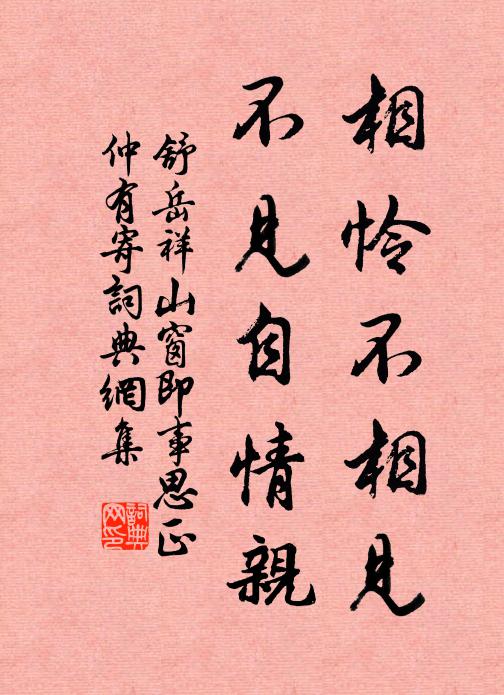 相怜不相見
不見自情親
舒岳祥山窗即事思正
仲有寄詞典網集
詞典网印